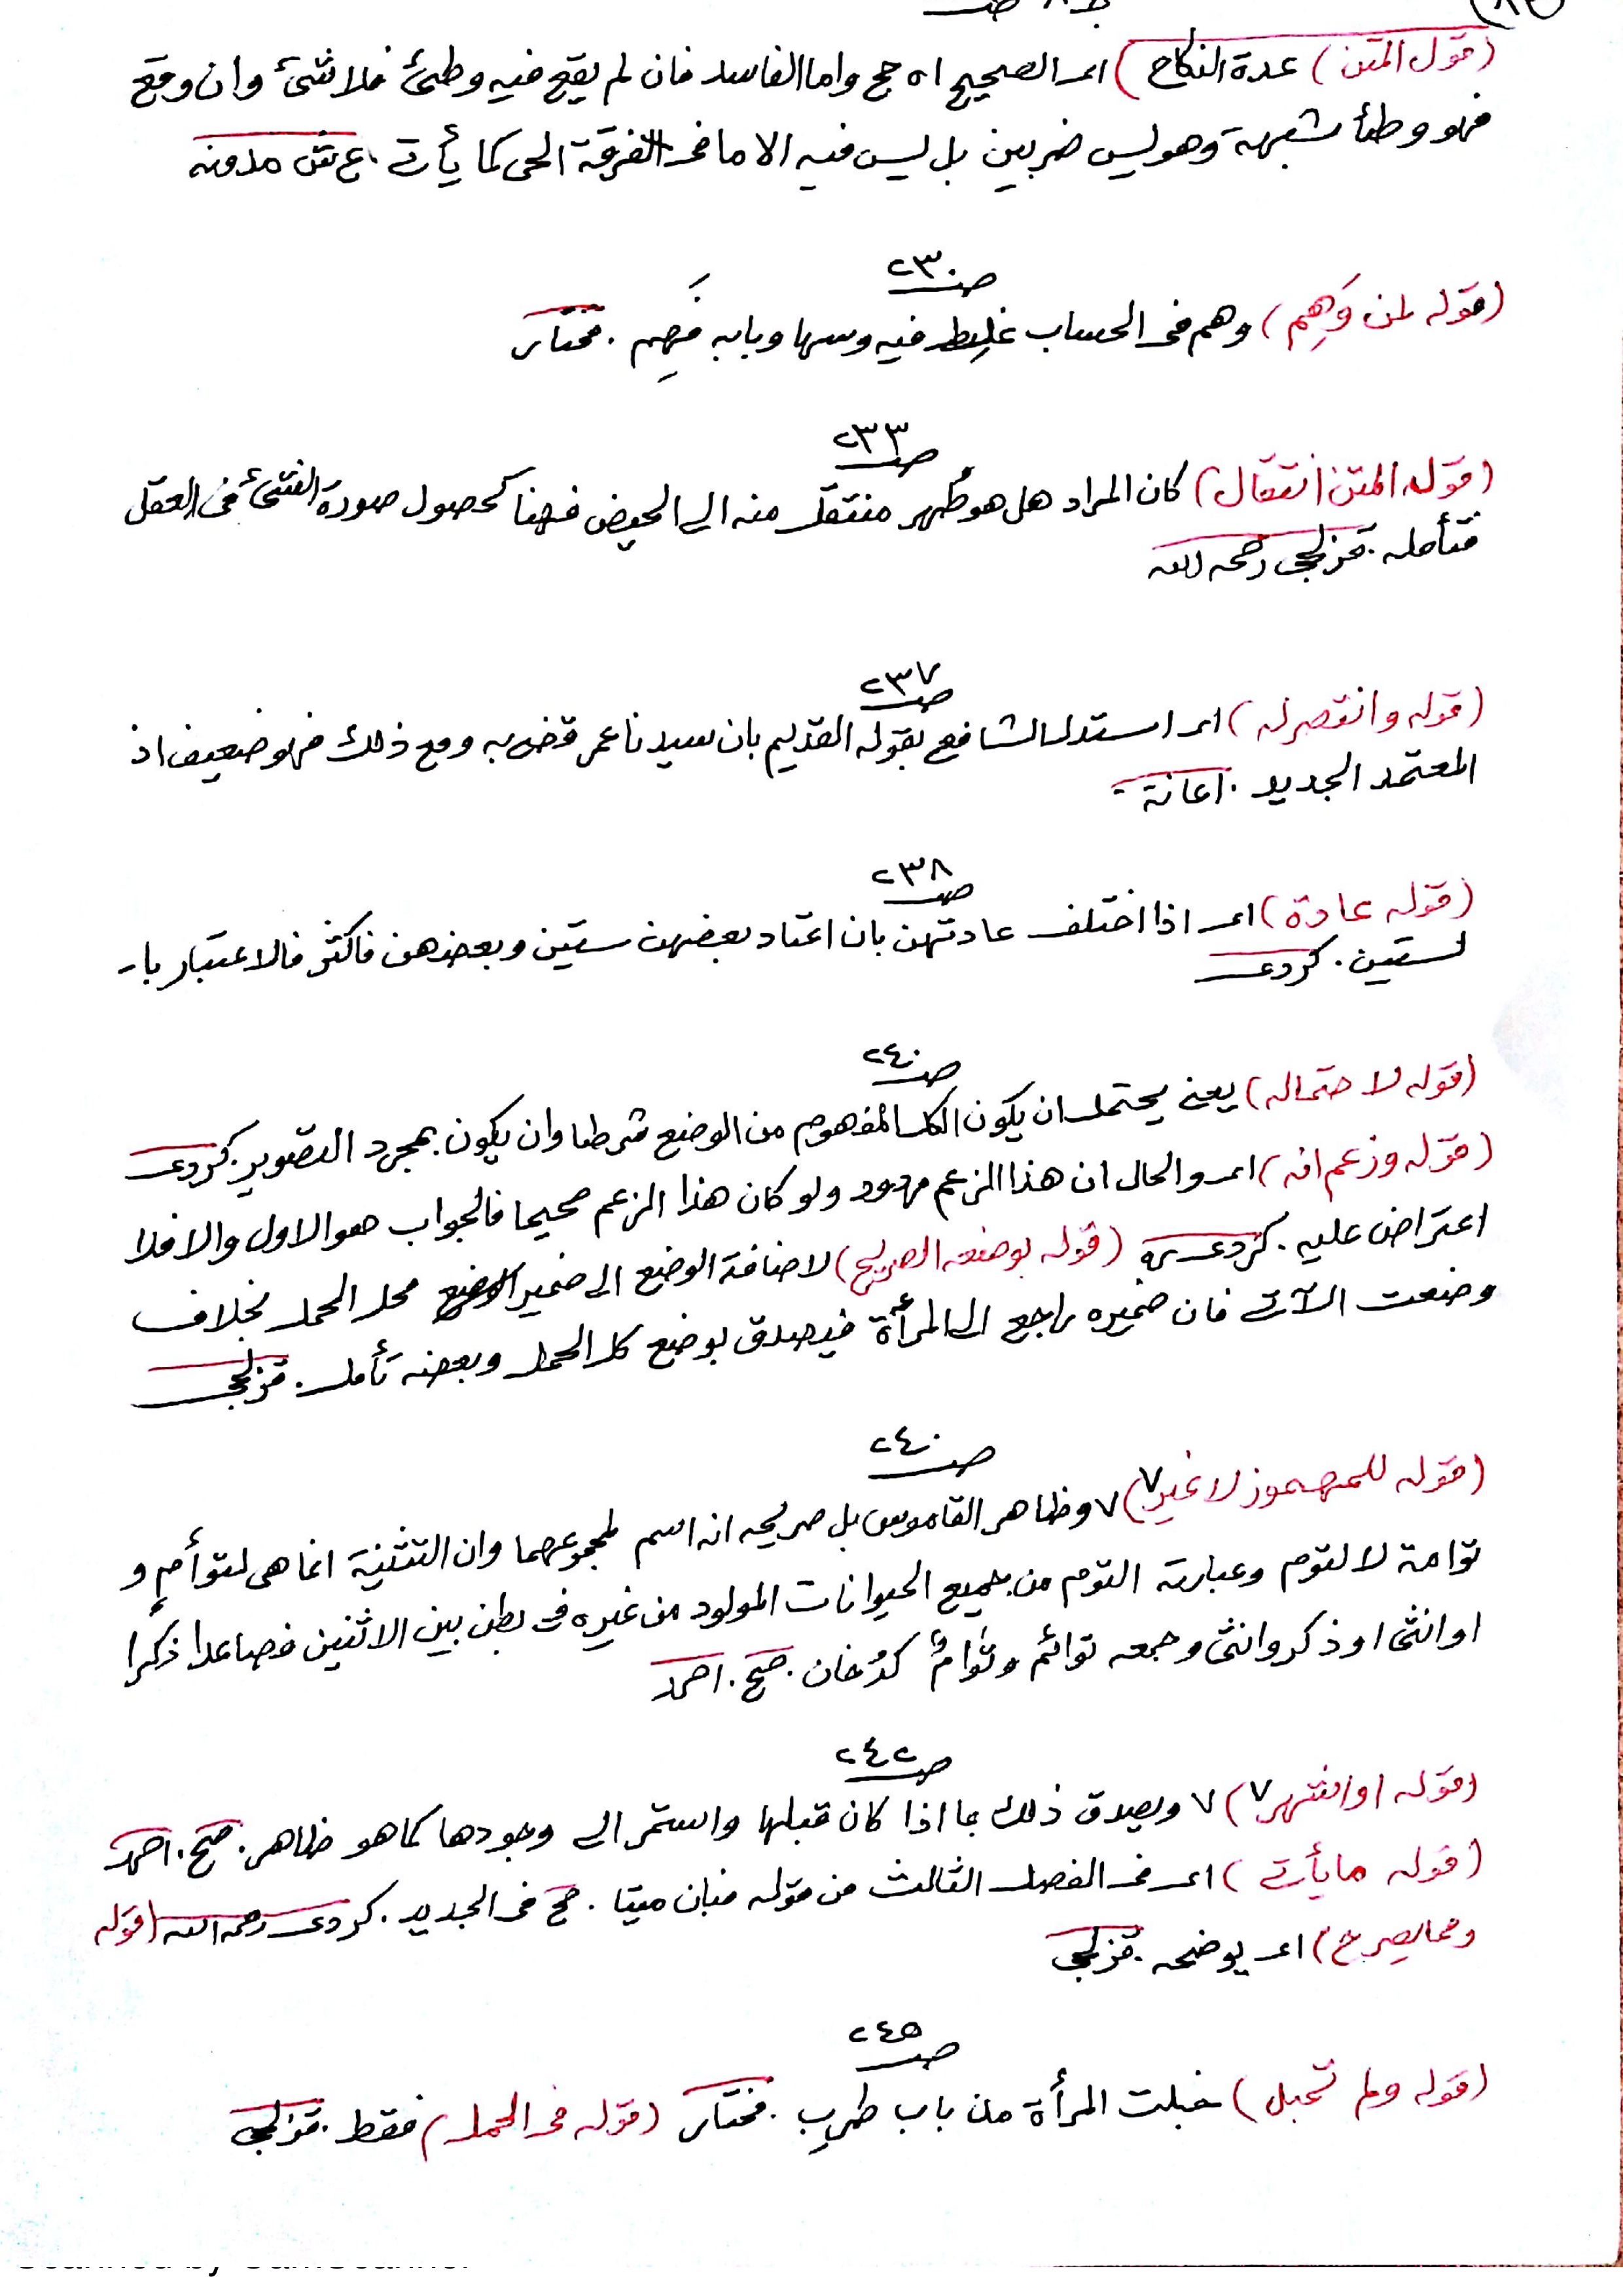 (قول المتن) عدة النكاح) اى الصحيح اه حج واما الفاسد فان لم يقع فيه وطئ فلا شئ وان وقع
فهو وطأ شبهة وهو ليس ضربين بل ليس فيه الا ما فى الفرقة الحى كما يأتى ع ش مدونه
صـ ٢٣٠
(قوله لمن وَهِم) وهم فى الحساب غلِط فيه وسها وبابه فَهِم . مختار
صـ ٢٣٣
(قوله المتن انتقال) كان المراد هل هو طُهر منتقل منه الى الحيض فهنا كحصول صورة الشئ فى العقل
فتأمله . قزلجى رحمه الله
صـ ٢٣٧
(قوله وانتصر له) اى استدل الشافعى بقوله القديم بان سيدنا عمر قضى به ومع ذلك فهو ضعيف اذ
المعتمد الجديد . اعانة
صـ ٢٣٨
(قوله عادة) اى اذا اختلف عادتهن بان اعتاد بعضهن ستين وبعضهن فاكثر فالاعتبار با-
لستين . كردى
صـ ٢٤٠
(قوله لاحتماله) يعنى يحتمل ان يكون الكل المفهوم من الوضع شرطا وان يكون بمجرد التصوير . كردى
(قوله وزعم انه) اى والحال ان هذا الزعم مردود ولو كان هذا الزعم صحيحا فالجواب هو الاول والا فلا
اعتراض عليه . كردى (قوله بوضعه الصريح) لاضافة الوضع الى ضمير الوضع محل الحمل بخلاف
وضعت الآتى فان ضميره راجع الى المرأة فيصدق بوضع كل الحمل وبعضه تأمل . قزلجى
صـ ٢٤٠
(قوله للمهموز لا غير ٧) ٧ وظاهر القاموس بل صريحه انه اسم لمجموعهما وان التثنية انما هى لتوأمٍ و
توامة لا لتوم وعبارته التوم من جميع الحيوانات المولود من غيره فى بطن بين الاثنين فصاعدا ذكرا
او انثى او ذكر وانثى وجمعه توائم وتُوامٌ كدُخان . صح . احمد
صـ ٢٤٢
(قوله او اشتهر ٧) ٧ ويصدق ذلك بما اذا كان قبلها واستمر الى وجودها كما هو ظاهر . صح . احمد
(قوله ما يأتى) اى فى الفصل الثالث من قوله فبان ميتا . صح فى الجديد . كردى رحمه الله (قوله
ومما يصرح) اى يوضحه . قزلجى
صـ ٢٤٥
(قوله ولم تحبل) حبلت المرأة من باب طرِب . مختار (قوله فى الحمل) فقط . قزلجى